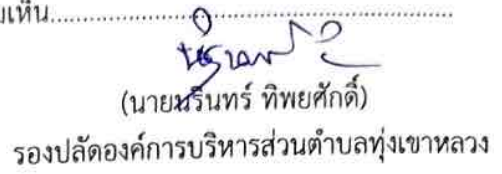 เห็น
(นายนรินทร์ ทิพยศักดิ์)
รองปลัดองค์การบริหารส่วนตำบลทุ่งเขาหลวง